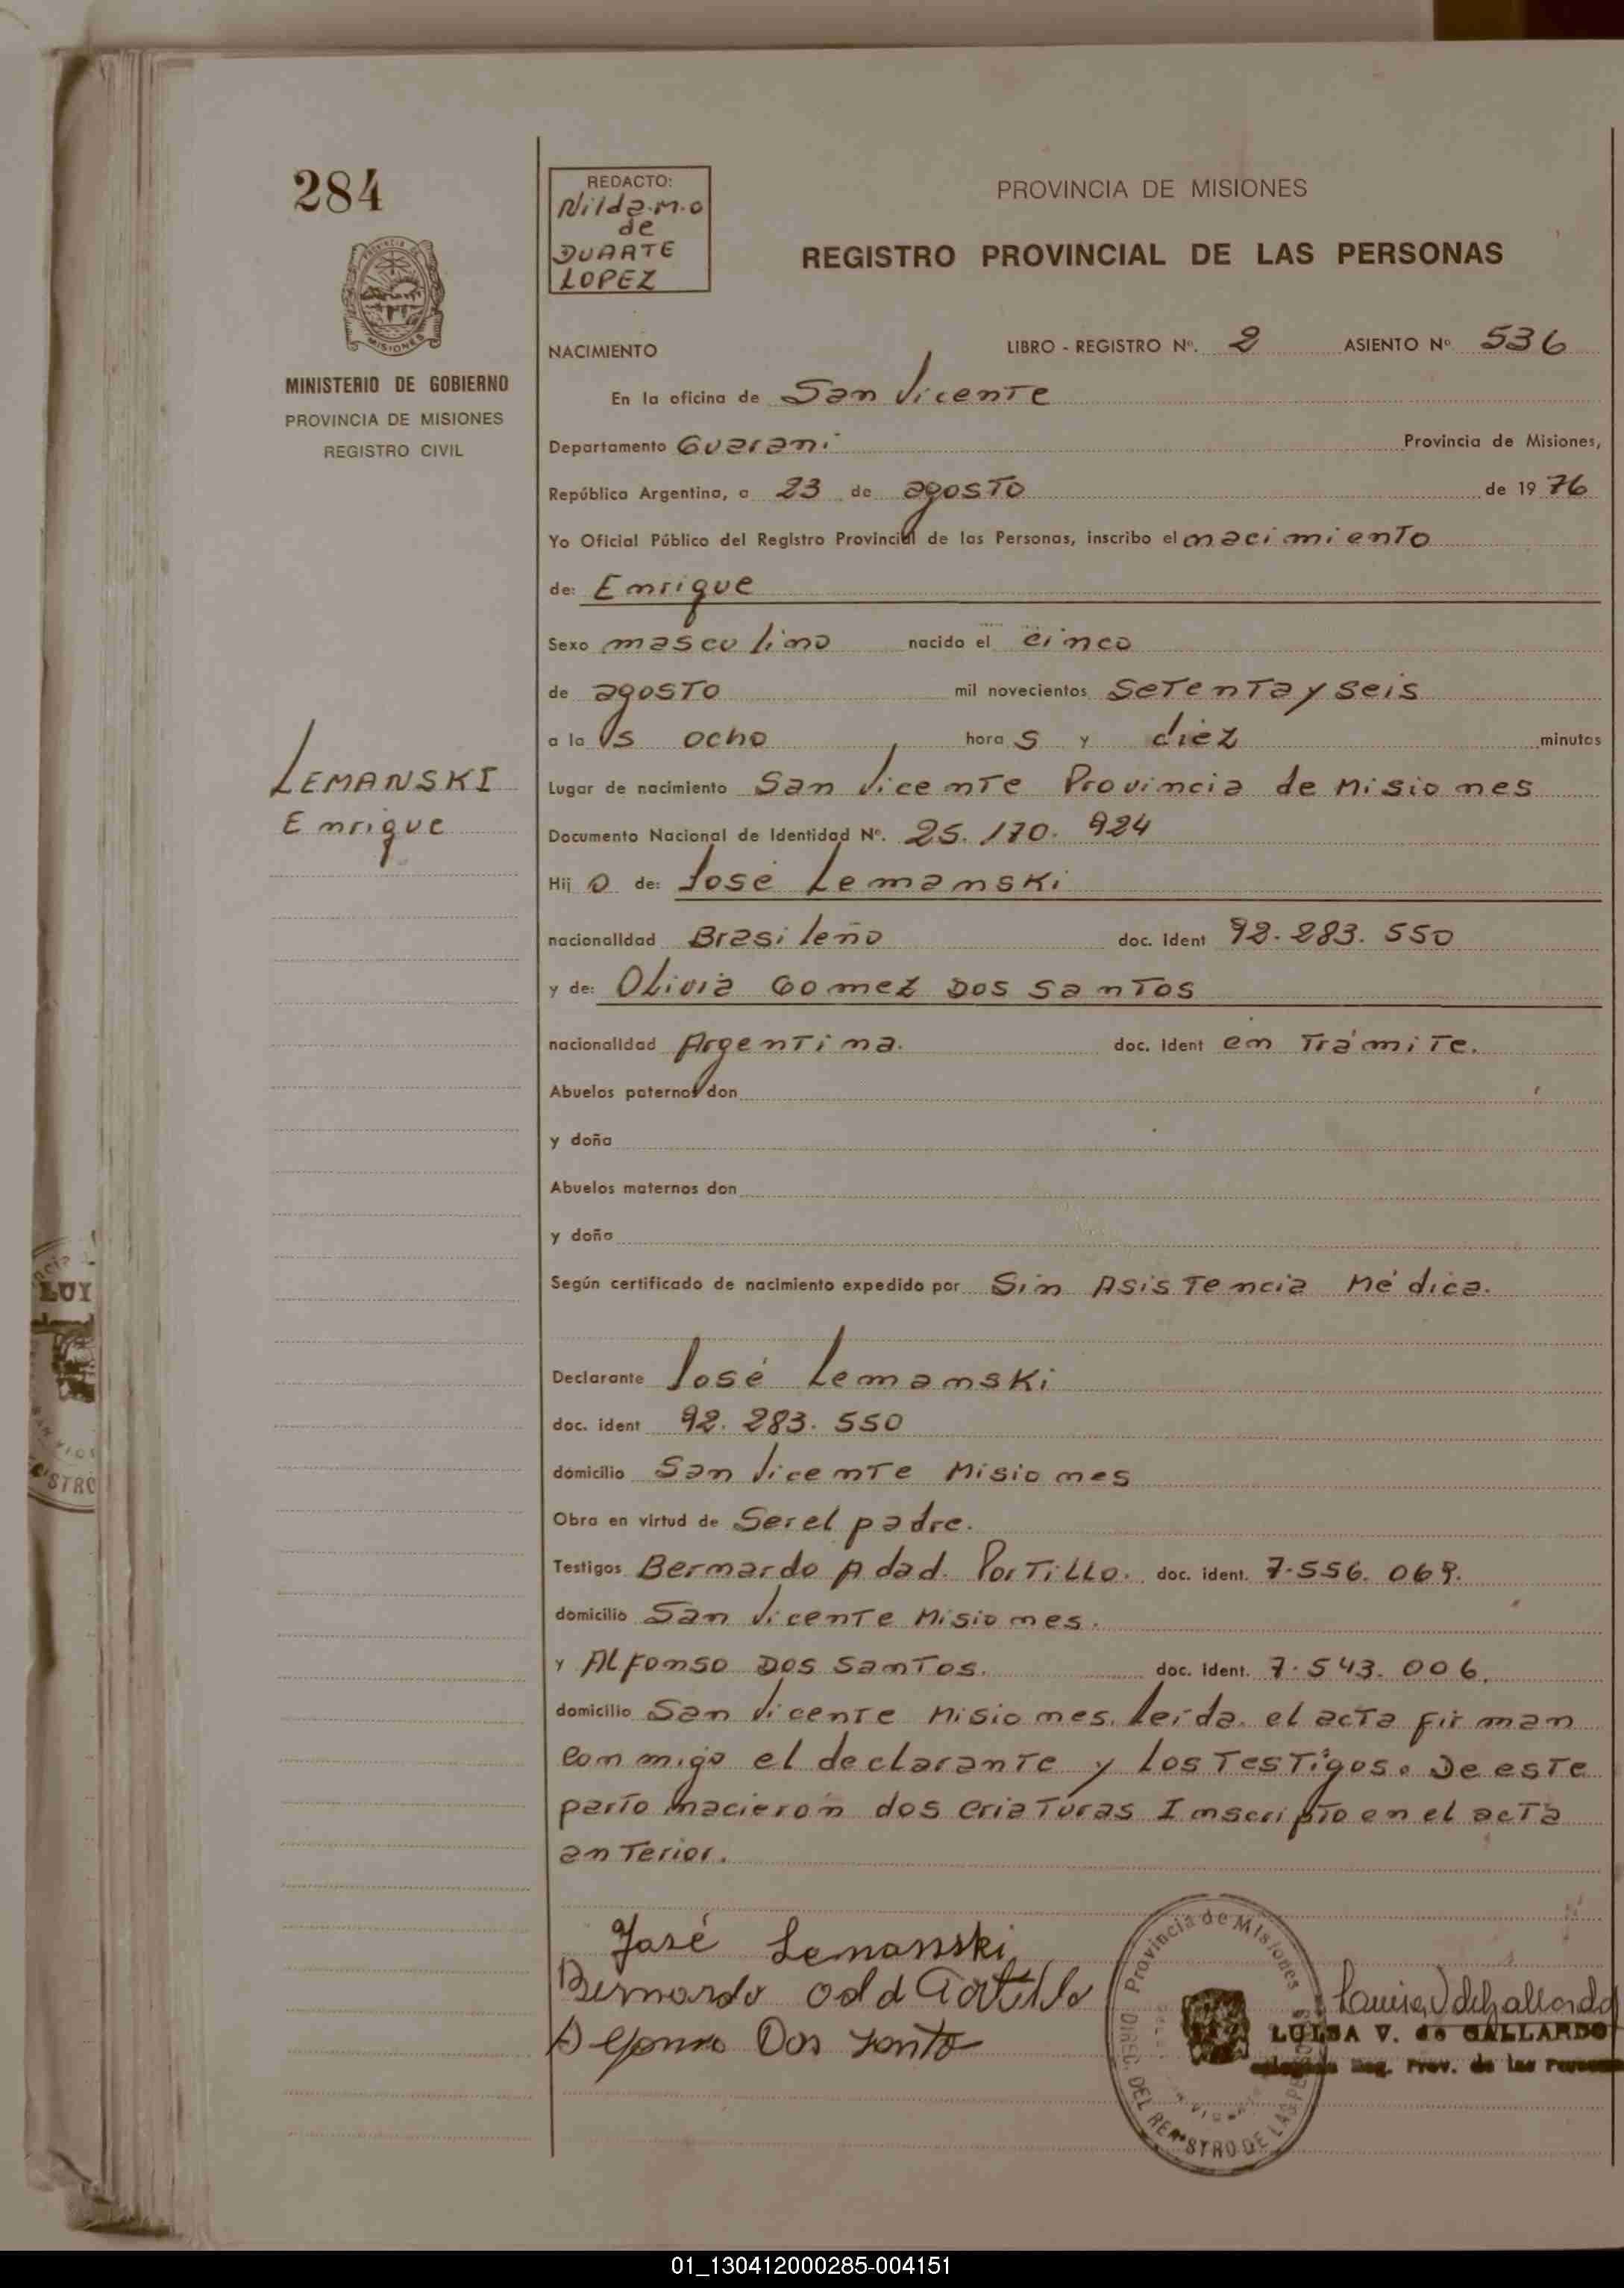 284
PROVINCIA DE MISIONES
MINISTERIO DE GOBIERNO
PROVINCIA DE MISIONES
REGISTRO CIVIL
LEMANSKI
Enrique
REDACTO:
Nilda.M.O
de
DUARTE
LOPEZ
PROVINCIA DE MISIONES
REGISTRO PROVINCIAL DE LAS PERSONAS
NACIMIENTO LIBRO - REGISTRO Nº. 2 ASIENTO Nº 536
En la oficina de San Vicente
Departamento Guarani Provincia de Misiones,
República Argentina, a 23 de agosto de 1976
Yo Oficial Público del Registro Provincial de las Personas, inscribo el nacimiento
de: Enrique
Sexo masculino nacido el cinco
de agosto mil novecientos setenta y seis
a las ocho horas y diez minutos
Lugar de nacimiento San Vicente Provincia de Misiones
Documento Nacional de Identidad Nº. 25.170.924
Hijo de: José Lemanski
nacionalidad Brasileño doc. Ident 92.283.550
y de: Olivia Gomez Dos Santos
nacionalidad Argentina. doc. Ident en Trámite.
Abuelos paternos don
y doña
Abuelos maternos don
y doña
Según certificado de nacimiento expedido por Sin Asistencia Médica.
Declarante José Lemanski
doc. ident 92.283.550
domicilio San Vicente Misiones
Obra en virtud de Ser el padre.
Testigos Bernardo Adad. Portillo. doc. ident. 7.556.069.
domicilio San Vicente Misiones.
y Alfonso Dos Santos. doc. ident. 7.543.006.
domicilio San Vicente Misiones. Leída. el acta firman
conmigo el declarante y los testigos. De este
parto nacieron dos criaturas Inscripto en el acta
anterior.
José Lemanski
Bernardo Portillo
Dos Santo
Provincia de Misiones
DIREC. DEL REGISTRO DE LAS PERSONAS
LUISA V. de GALLARDO
Reg. Prov. de las Personas
LUI
01_130412000285-004151